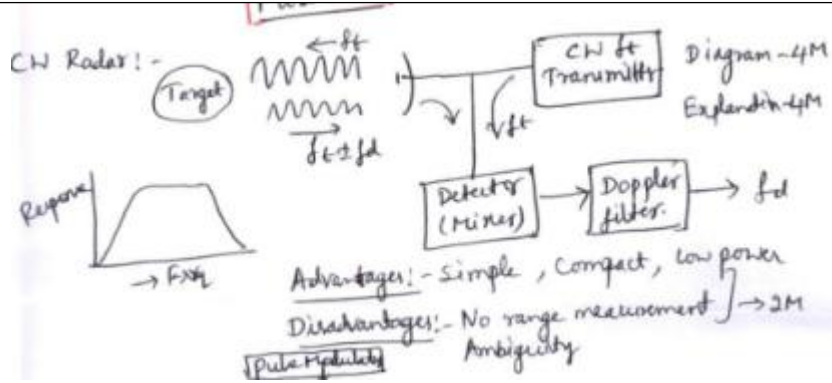 CW Radar :-
Target
← ft
ft ± fd
ft
CW ft
Transmitter
Diagram - 4M
Explanation - 4M
Detector
(Mixer)
Doppler
filter.
fd
Response
→ Freq
Advantages :- Simple, Compact, low power
Disadvantages :- No range measurement
Ambiguity
→ 2M
Pulse Modulated